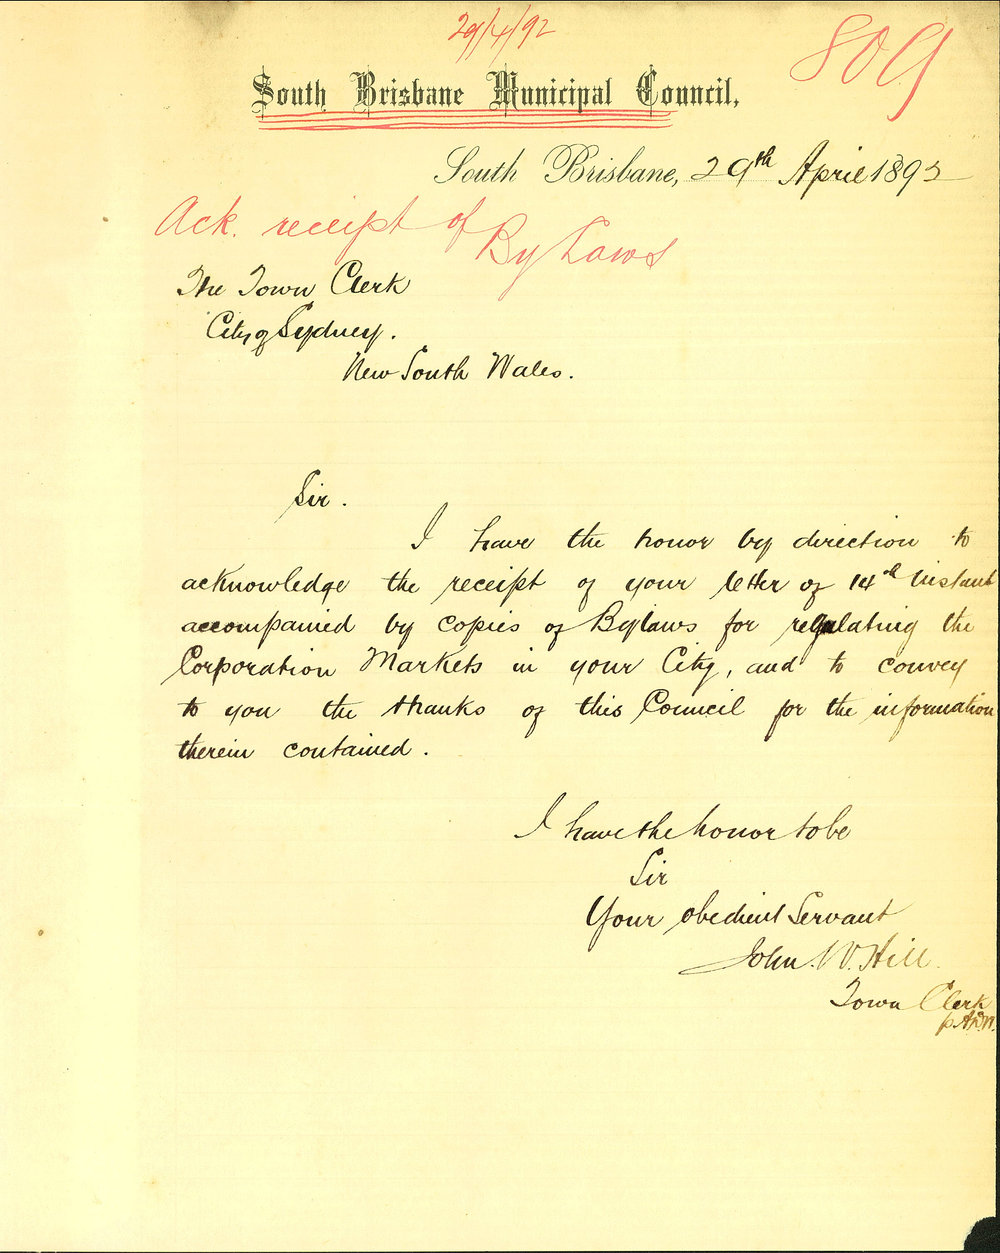 29/4/92
809
South Brisbane Municipal Council,
South Brisbane, 29th April 1892
Ack. receipt of By Laws
The Town Clerk
City of Sydney.
New South Wales.
Sir.
I have the honor by direction to
acknowledge the receipt of your letter of 14th instant
accompanied by copies of Bylaws for regulating the
Corporation Markets in your City, and to convey
to you the thanks of this Council for the information
therein contained.
I have the honor to be
Sir
Your obedient Servant
John. W. Hill.
Town Clerk